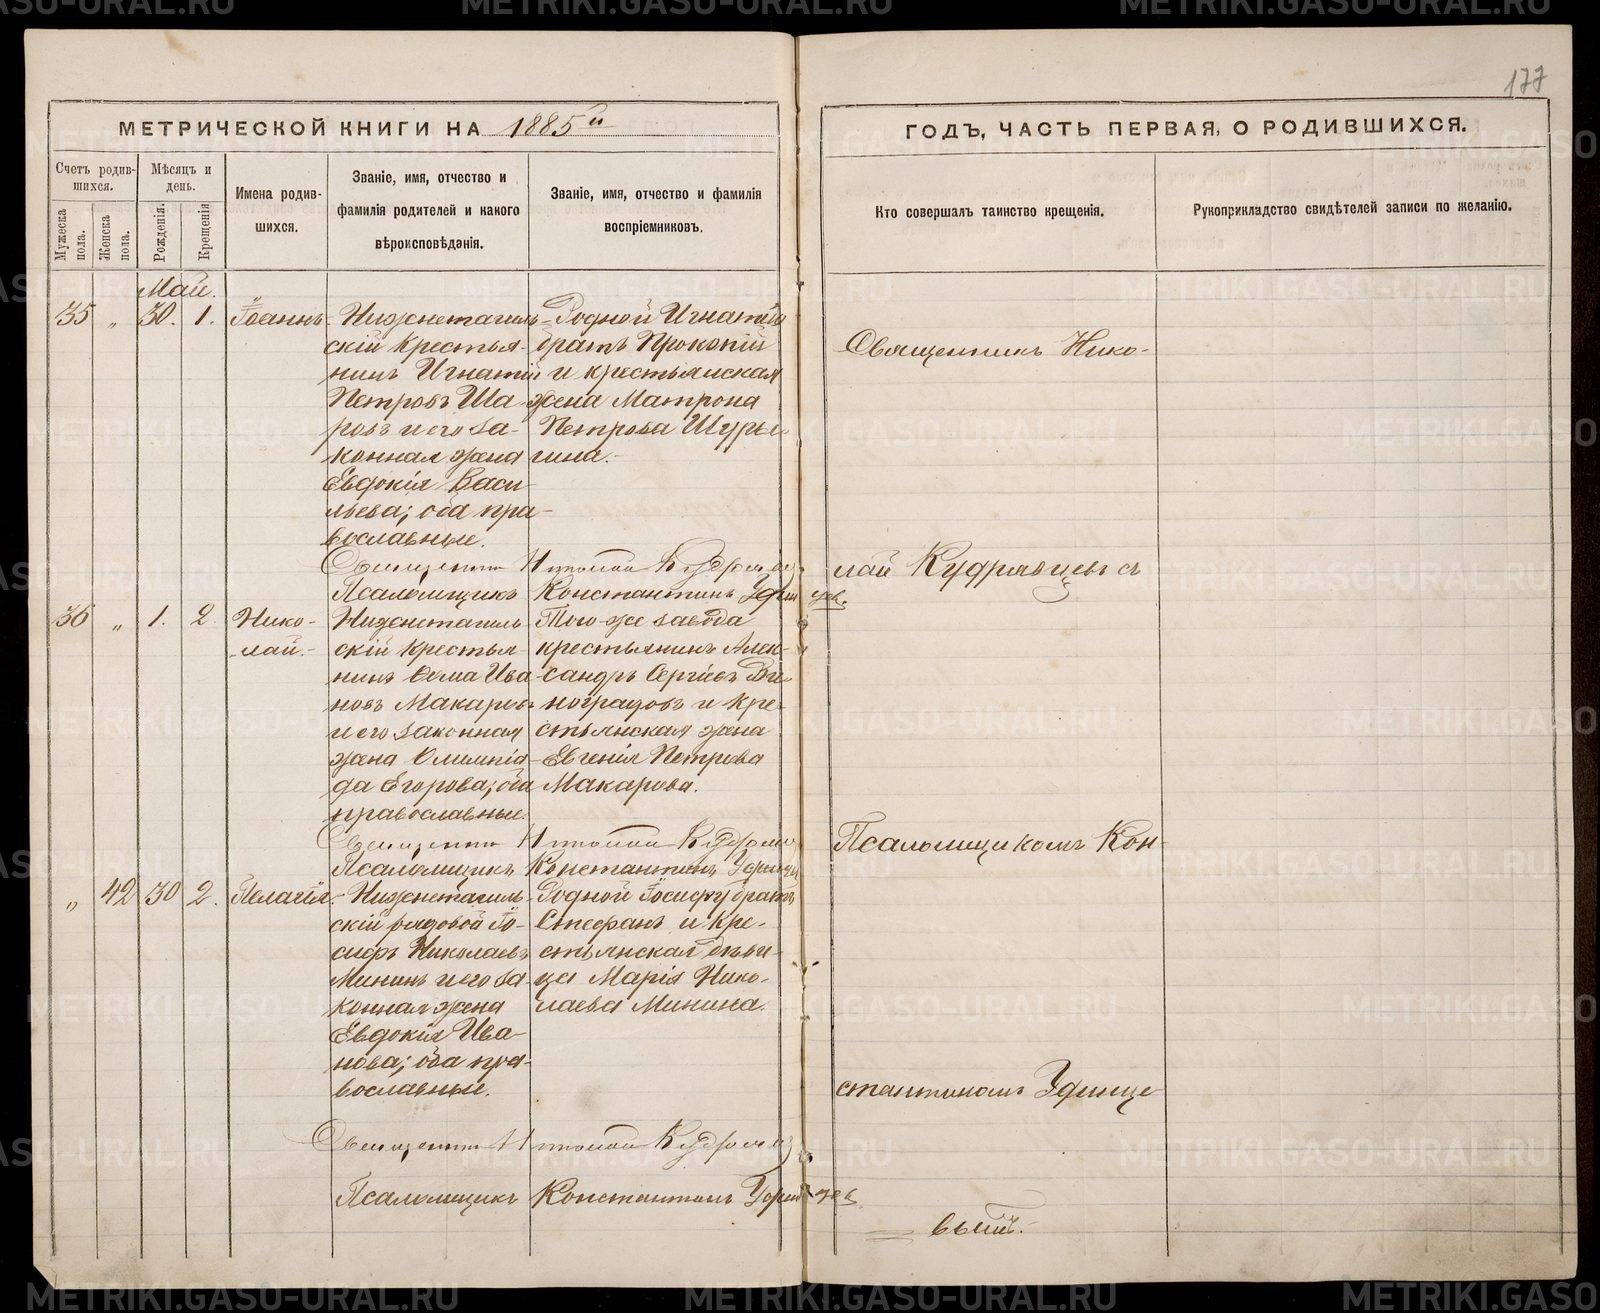 177
МЕТРИЧЕСКОЙ КНИГИ НА 1885й
ГОДЪ, ЧАСТЬ ПЕРВАЯ, О РОДИВШИХСЯ.
Счетъ родив-
шихся.
Мужеска пола.
Женска пола.
Мѣсяцъ и
день.
Рожденія.
Крещенія
Имена родив-
шихся.
Званіе, имя, отчество и
фамилія родителей и какого
вѣроисповѣданія.
Званіе, имя, отчество и фамилія
воспріемниковъ.
Кто совершалъ таинство крещенія.
Рукоприкладство свидѣтелей записи по желанію.
Май.
35 „ 30. 1. Іоаннъ.
Нижнетагиль-
скій крестья-
нинъ Игнатій
Петровъ Ша-
ровъ и его за-
конная жена
Евдокія Васи-
льева; оба пра-
вославные.
Родной Игнатію
братъ Прокопій
и крестьянская
жена Матрона
Петрова Шуры-
гина.
Священникъ Николай
Псаломщикъ Константинъ
36 „ 1. 2. Нико-
лай.
Нижнетагиль
скій крестья-
нинъ Ѳома Ива-
новъ Макаровъ
и его законная
жена Олимпіа-
да Егорова; оба
православные.
Того-же завода
крестьянинъ Алек-
сандръ Сергѣевъ Ви-
ноградовъ и кре-
стьянская жена
Евгенія Петрова
Макарова.
Священникъ Николай
Псаломщикъ Константинъ
„ 42 30 2. Пелагія.
Нижнетагиль-
скій рядовой Іо-
сифъ Николаевъ
Мининъ и его за-
конная жена
Евдокія Ива-
нова; оба пра-
вославные.
Родной Іосифу братъ
Стефанъ и кре-
стьянская дѣви-
ца Марія Нико-
лаева Минина.
Священникъ Николай
Псаломщикъ Константинъ
Священникъ Нико-
лай Кудрявцевъ съ
Псаломщикомъ Кон-
стантиномъ Удинце
вымъ.
METRIKI.GASO-URAL.RU